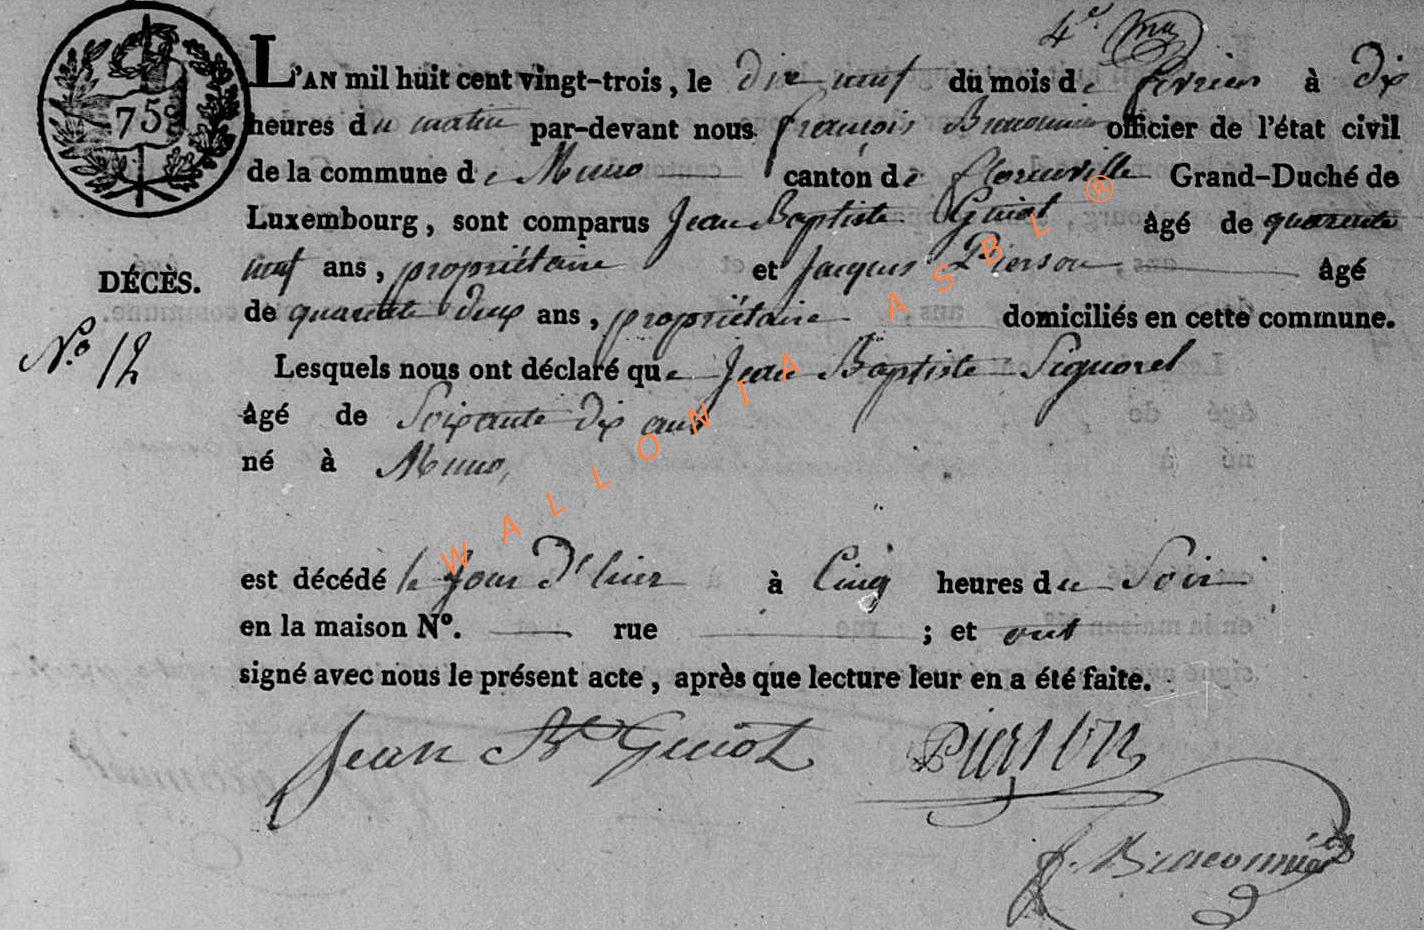 4e.
75
L'AN mil huit cent vingt-trois, le dix neuf du mois de fevrier à dix
heures du matin par-devant nous françois Braconnier officier de l'état civil
de la commune de Muno canton de florenville Grand-Duché de
Luxembourg, sont comparus Jean Baptiste Guiot âgé de quarante
neuf ans, propriétaire et Jacques Pierson âgé
DÉCÈS.
de quarante deux ans, propriétaire domiciliés en cette commune.
N.o 12
Lesquels nous ont déclaré que Jean Baptiste Signorel
âgé de Soixante dix ans
né à Muno,
est décédé le jour d'hier à Cinq heures du Soir
en la maison No. rue ; et ont
signé avec nous le présent acte, après que lecture leur en a été faite.
Jean Bte Guiot Pierson
f. Braconnier
WALLONIA ASBL ®